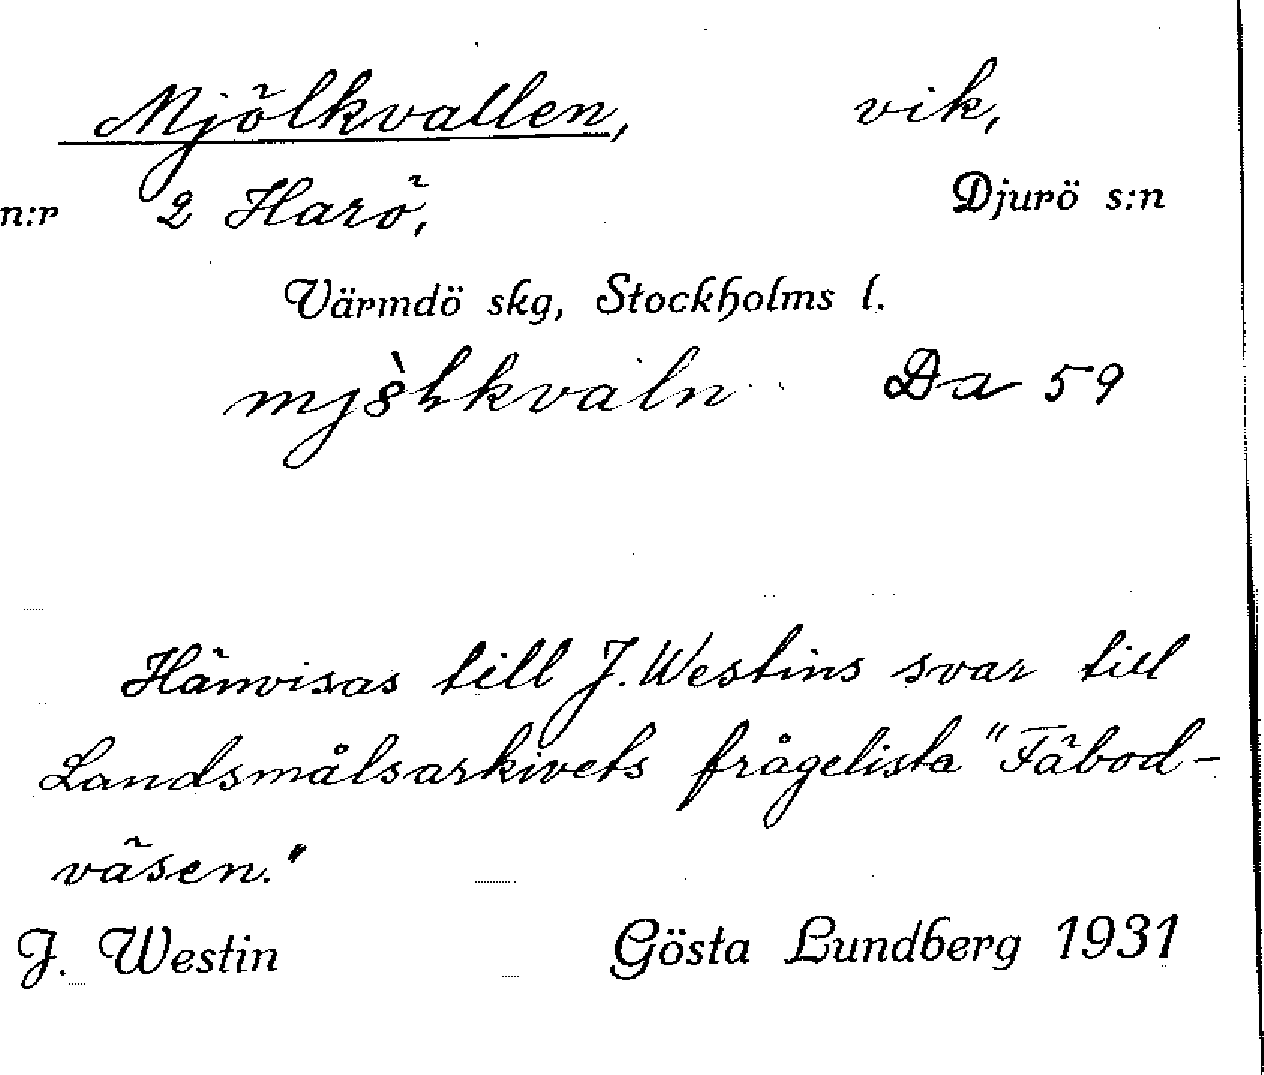 Mjölkvallen, vik,
n:r 2 Harö, Djurö s:n
Värmdö skg, Stockholms l.
Da 59
Hänvisas till J. Westins svar till
Landsmålsarkivets frågelista "Fäbod-
väsen."
J. Westin Gösta Lundberg 1931